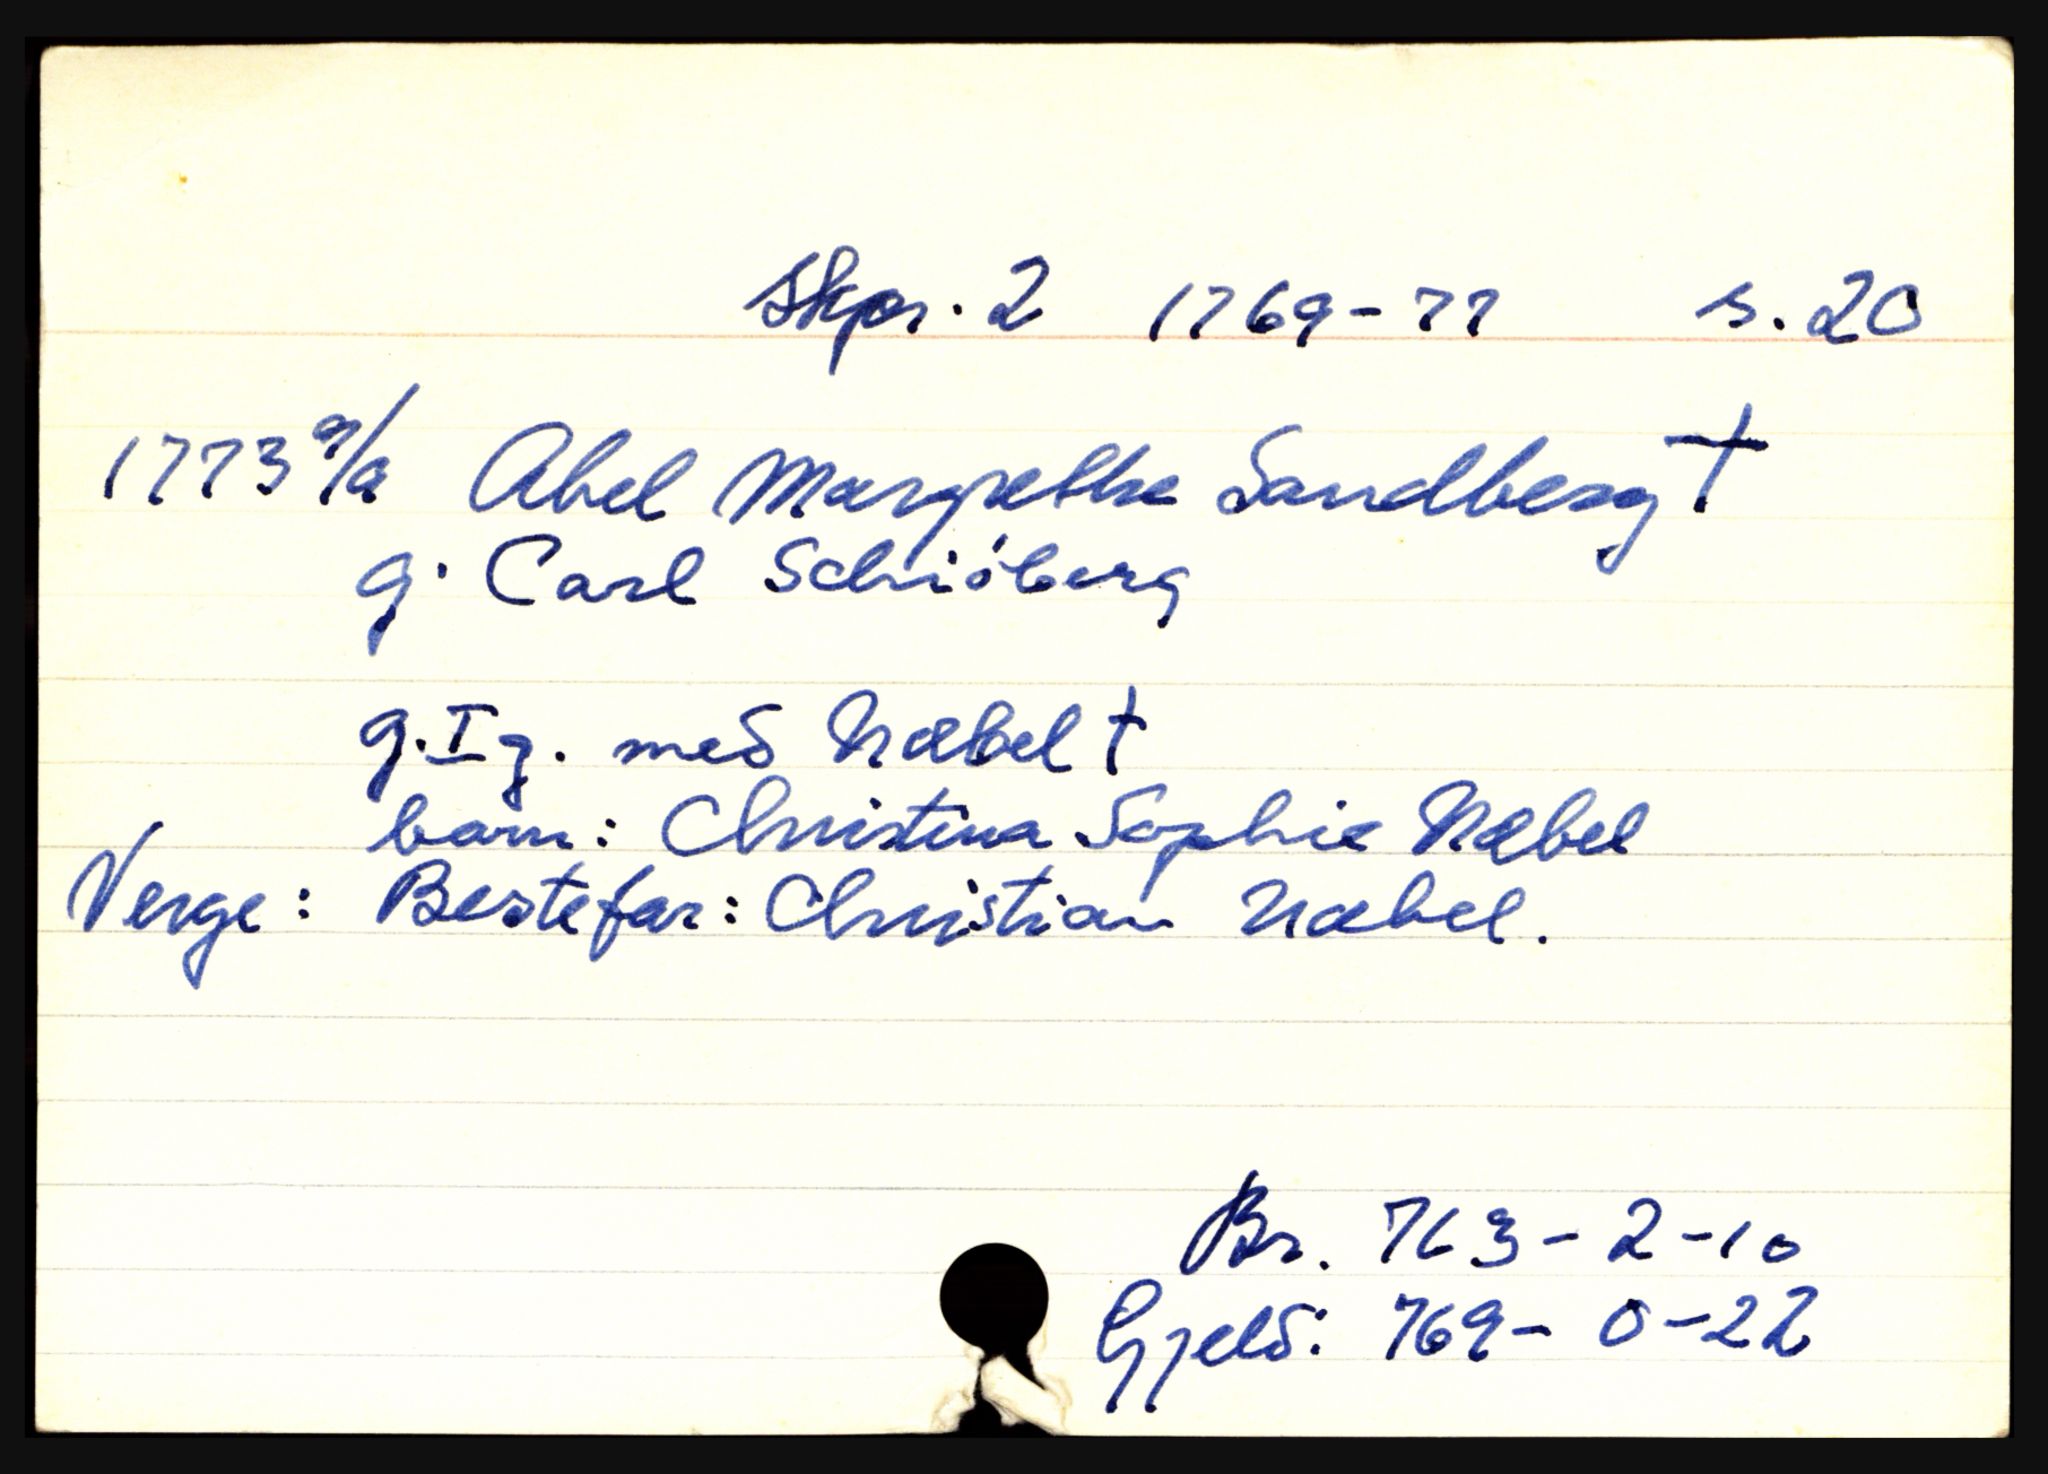 Skpr. 2 1769-77 s. 20
1773 9/9 Abel Margrethe Sandberg †
g. Carl Schiöberg
g. I g. med Næbel †
barn: Christina Sophie Næbel
Verge: Bestefar: Christian Næbel.
Br. 763-2-10
Gjeld: 769-0-22